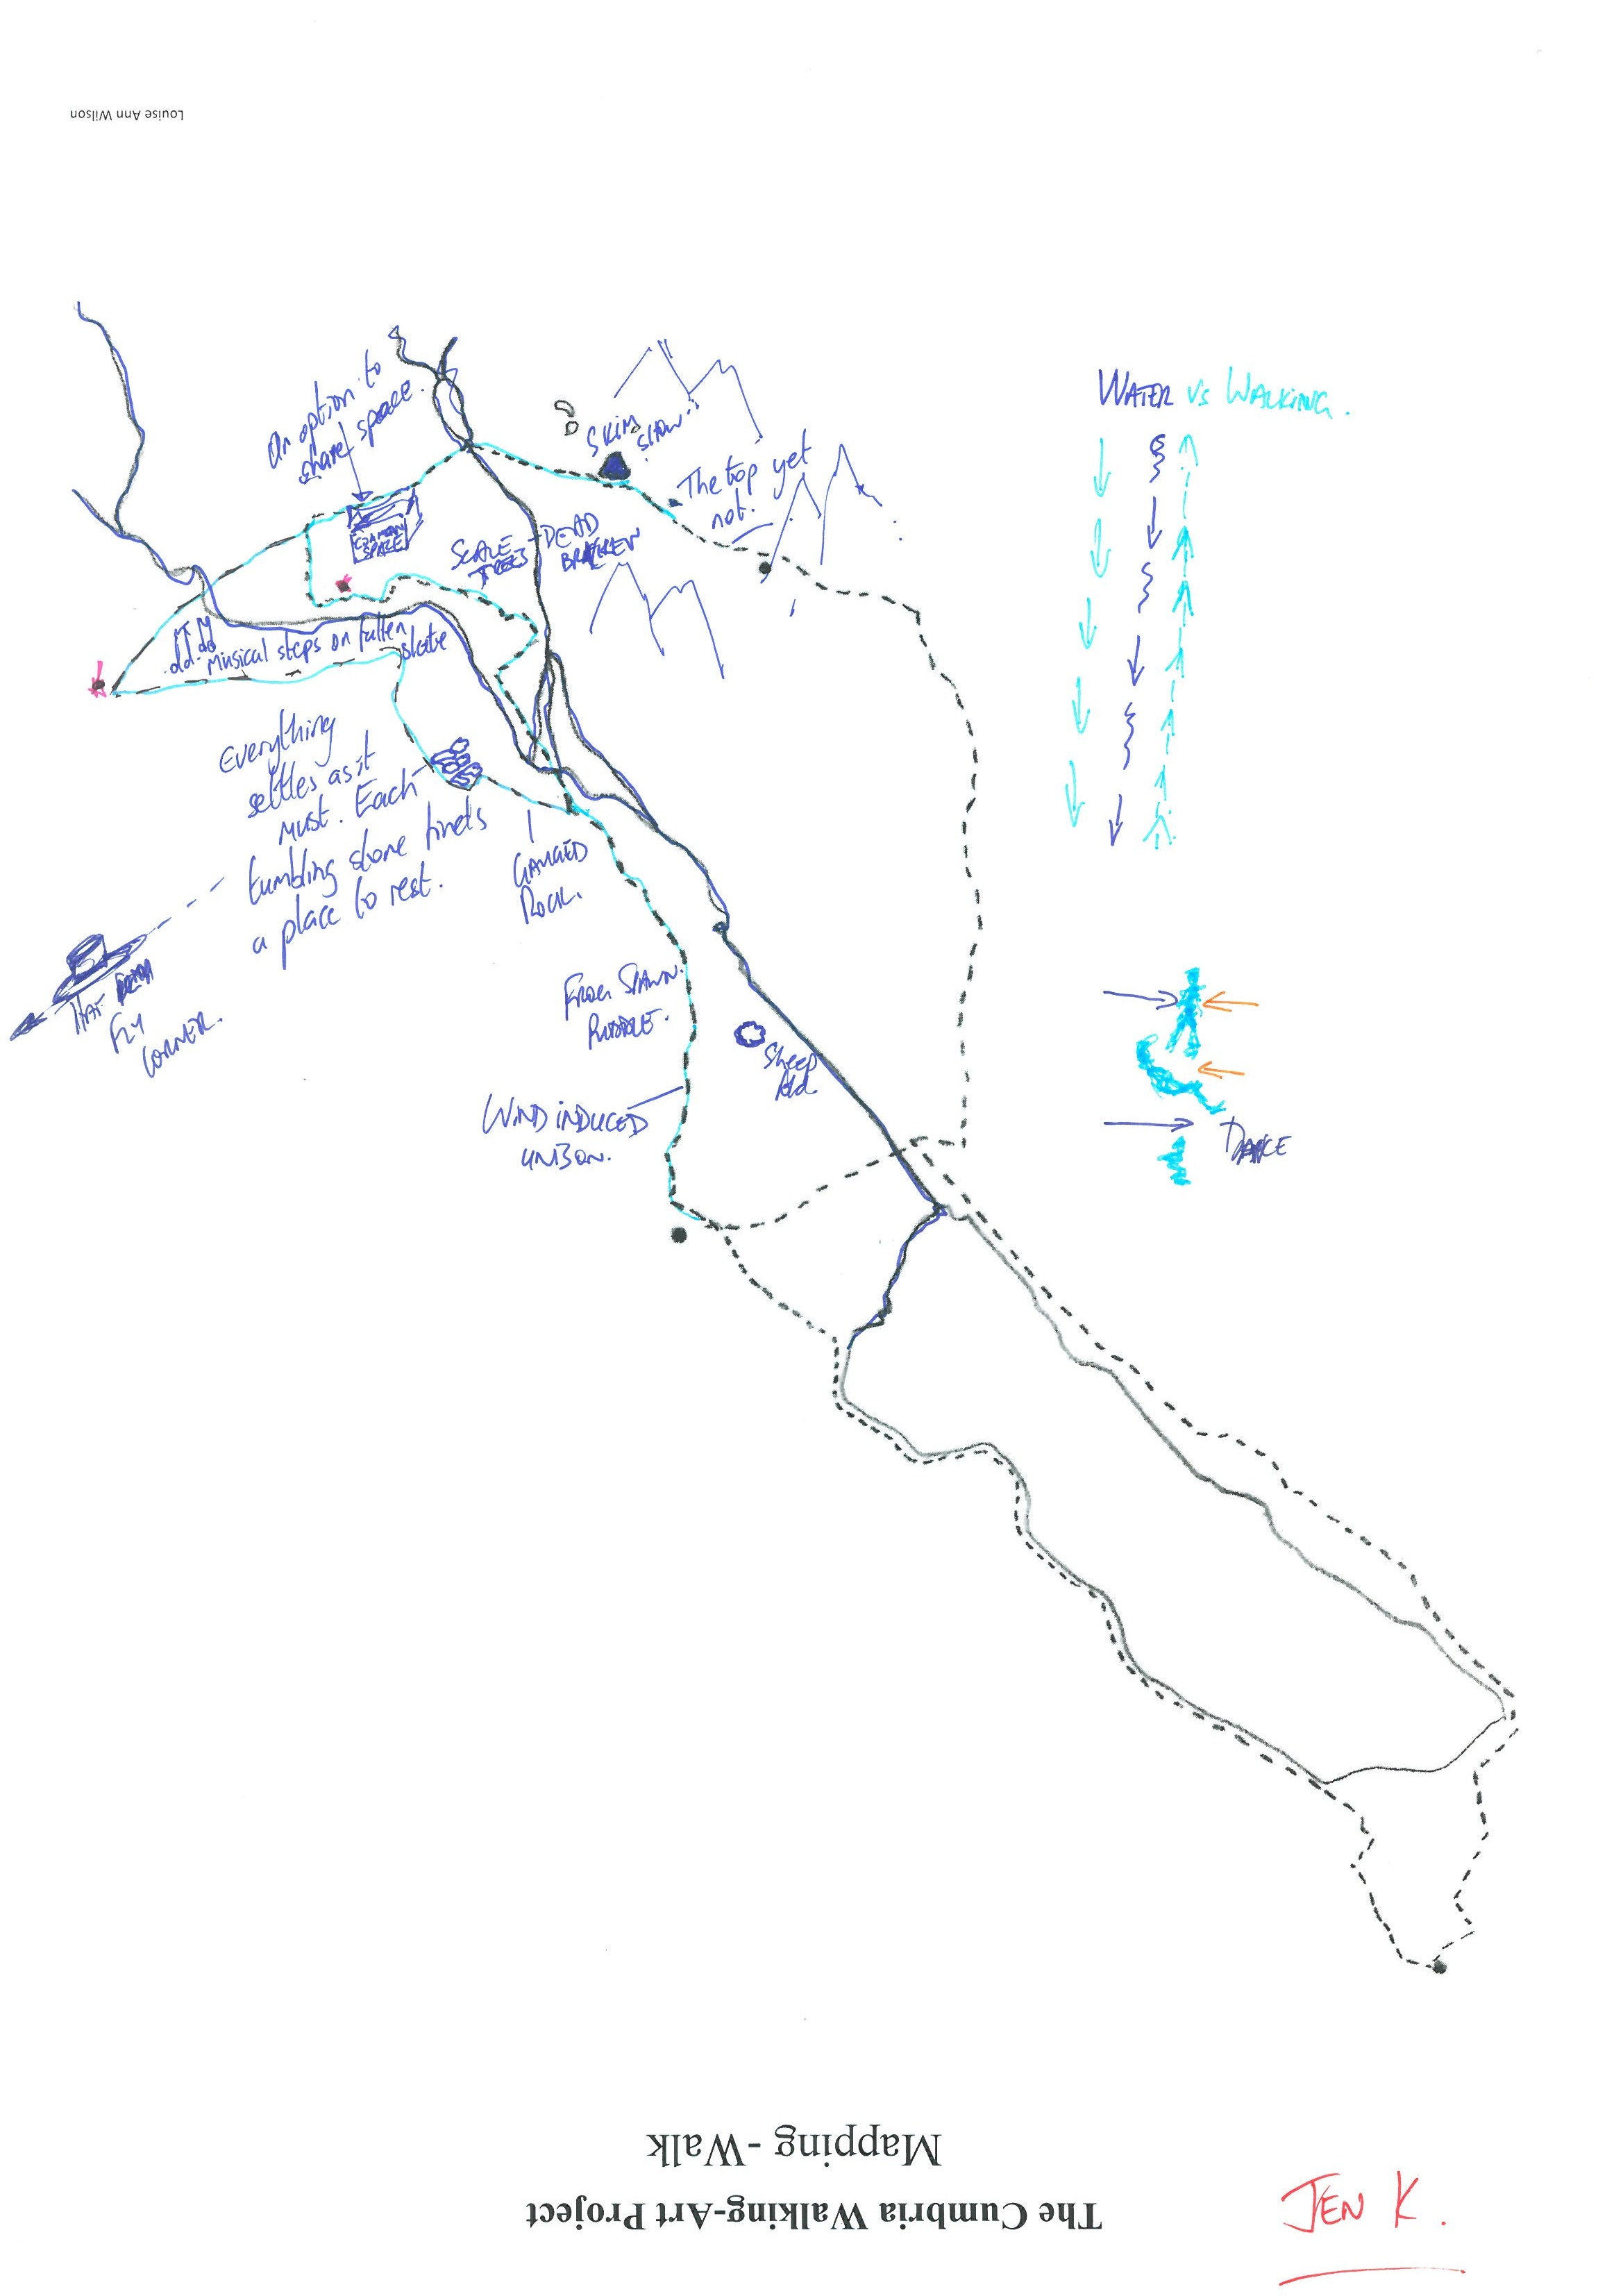 Louise Ann Wilson
An option to
share space.
COMMON
SPACE
SKIM
The top yet
not.
SCALE
TREES
DEAD
BRACKEN
Musical steps on fallen
slate
WATER VS WALKING.
Everything
settles as it
must. Each
tumbling stone finds
a place to rest.
GANGED
ROCK.
HAT
FLY
CORNER.
FROG SPAWN
PUDDLE.
Sheep
fold
WIND INDUCED
UNISON.
DANCE
The Cumbria Walking-Art Project
Mapping -Walk
JEN K.